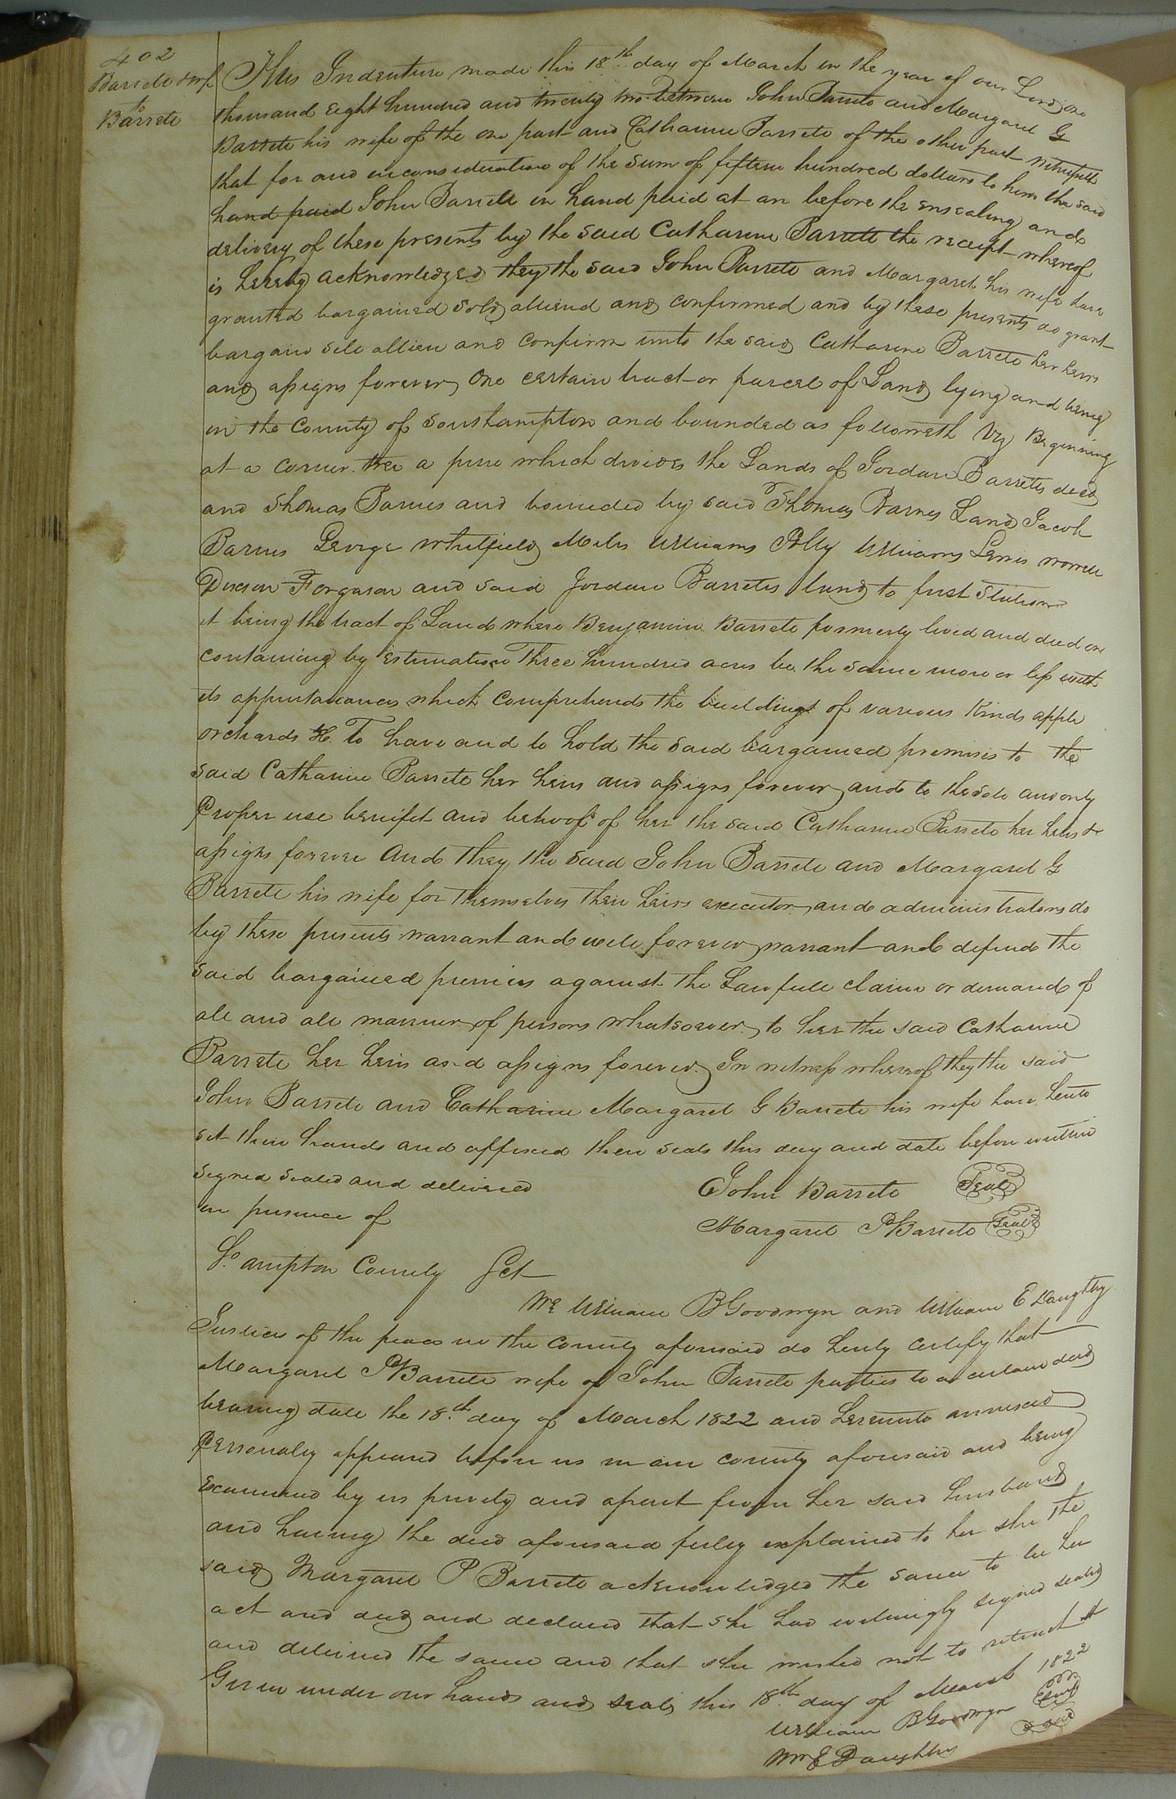 402
Barrete & wf
to
Barrete
This Indenture made this 18th day of March in the year of our Lord one
thousand Eight hundred and twenty two between John Barrete and Margaret G
Barrete his wife of the one part and Catharine Barrete of the other part witnesseth
that for and in consideration of the sum of fifteen hundred dollars to him the said
hand paid John Barrete in hand paid at an before the ensealing and
delivery of these presents by the said Catharine Barrete the receipt whereof
is hereby acknowledged they the said John Barrete and Margaret his wife have
granted bargained sold aliend and confirmed and by these presents do grant
bargain sell allien and confirm unto the said Catharine Barrete her heirs
and assigns forever, One certain tract or parcel of Land lying and being
in the County of Southampton and bounded as followeth Viz Beginning
at a corner tree a pine which divides the Lands of Jordan Barretes decd
and Thomas Barnes and bounded by said Thomas Barnes Land Jacob
Barnes George Whitfield Miles Williams Polly Williams Lewis Worrell
Forguson and said Jordan Barretes land to first Station
it being the tract of Land where Benjamin Barrete formerly lived and died on
containing by Estimation Three hundred acres be the same more or less with
its appurtanances which comprehends the buildings of various Kinds apple
orchards &c. To have and to hold the said bargained premises to the
said Catharine Barrete her heirs and assigns forever, and to the sole and only
Proper use benifit and behoof of her the said Catharine Barrete her heirs &
assighs forever And they the said John Barrete and Margaret G
Barrete his wife for Themselves their heirs executor, and administrators do
by these presents warrant and will forever warrant and defend the
said bargained premises against the Lawfull claim or demand of
all and all manner, of persons whatsoever, to her the said Catharine
Barrete her heirs and assigns forever. In witness whereof they the said
John Barrete and Catharine Margaret G Barrete his wife have hereto
set their hands and affixed their seals this day and date before written
Signed Sealed and delivered
in presence of
John Barrete Seal
Margaret P Barrete Seal
So ampton County Sct
We William B Goodwyn and William E Daughtry
Justices of the peace in the county aforesaid do herby certify that
Margaret P Barrete wife of John Barrete parties to a certain deed
bearing date the 18th day of March 1822 and hereunto annexed
Personally appeared before us in our county aforesaid and being
Examined by us privily and apart from her said husband
and having the deed aforesaid fully explained to her she the
said Margaret P Barrete acknowledged the same to be her
act and deed and declared that she had willingly signed sealed
and delivered the same and that she wished not to retract it
Given under our hands and seals this 18th day of March 1822
William B Goodwyn Seal
Wm E Daughtry Seal